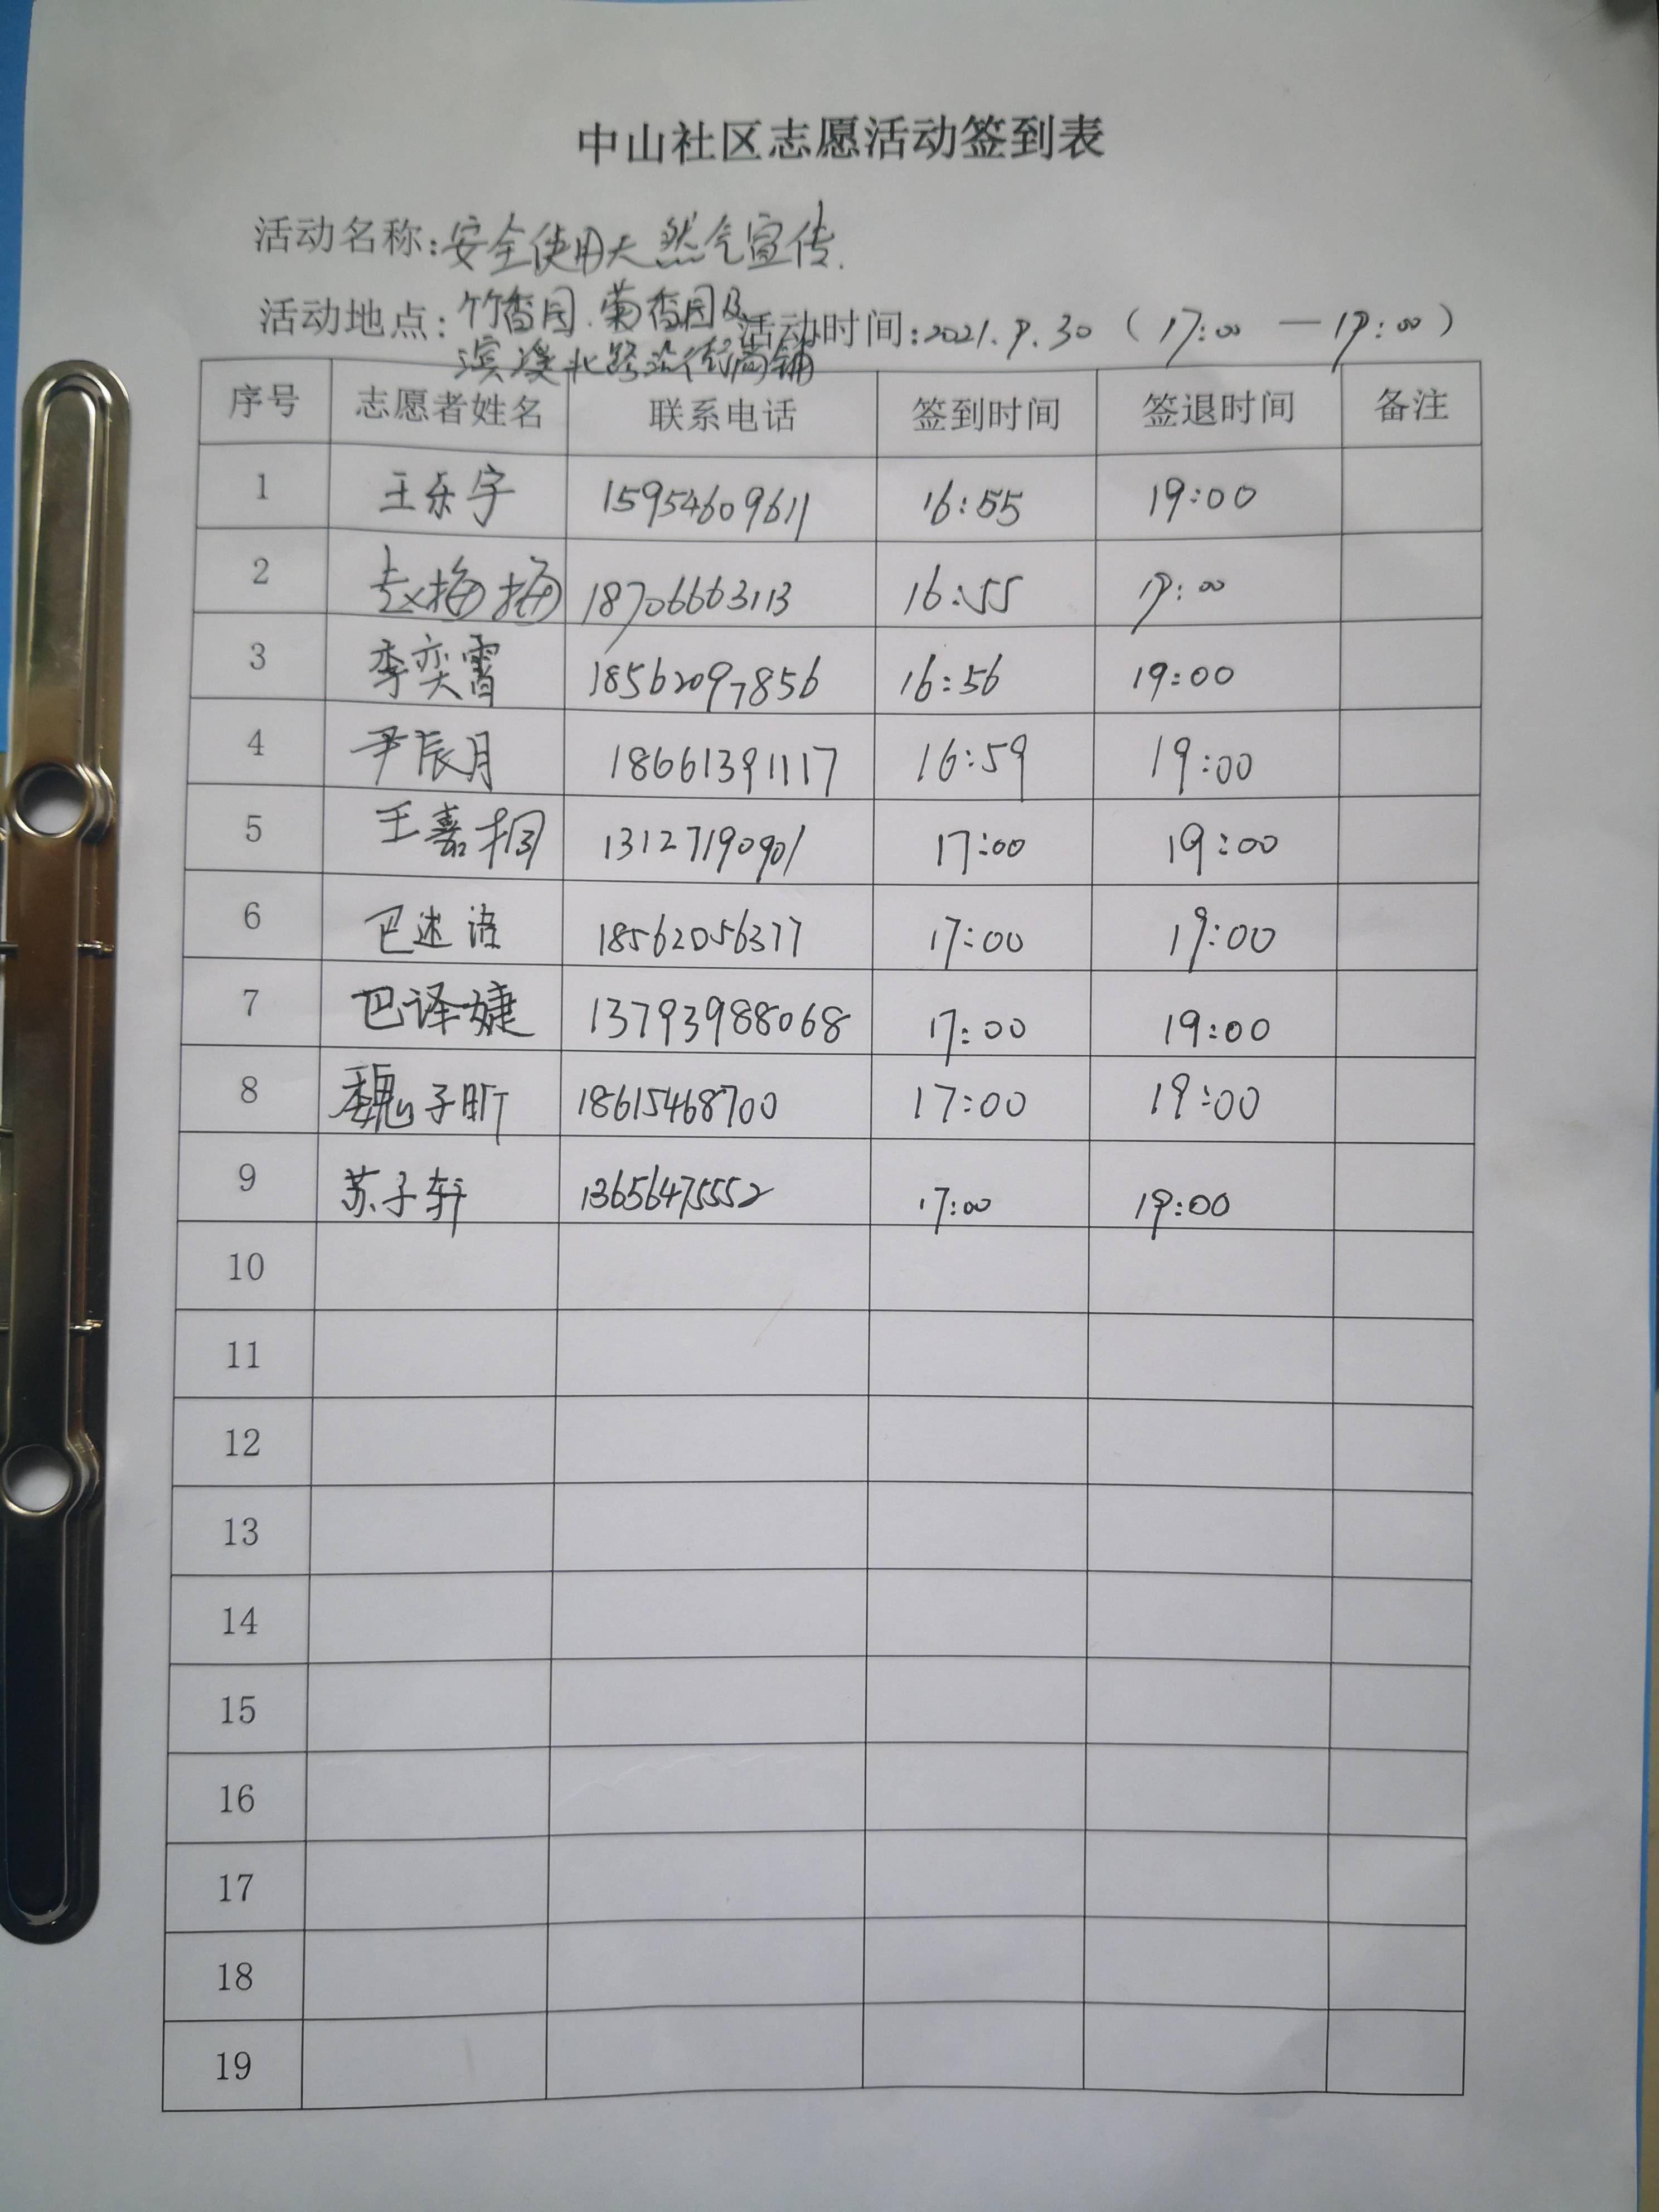 中山社区志愿活动签到表
活动名称:安全使用天然气宣传.
活动地点:竹香园.菊香园及 活动时间:2021.9.30（17:00—19:00）
滨溪北路沿街商铺
序号 志愿者姓名 联系电话 签到时间 签退时间 备注
1 王乐宇 15954609611 16:55 19:00
2 赵梅梅 18706663113 16:55 19:00
3 李奕霄 18562097856 16:56 19:00
4 尹辰月 18661391117 16:59 19:00
5 王嘉桐 13127190901 17:00 19:00
6 巴述语 18562056377 17:00 19:00
7 巴译婕 13793988068 17:00 19:00
8 魏子昕 18615468700 17:00 19:00
9 苏子轩 13656475552 17:00 19:00
10
11
12
13
14
15
16
17
18
19